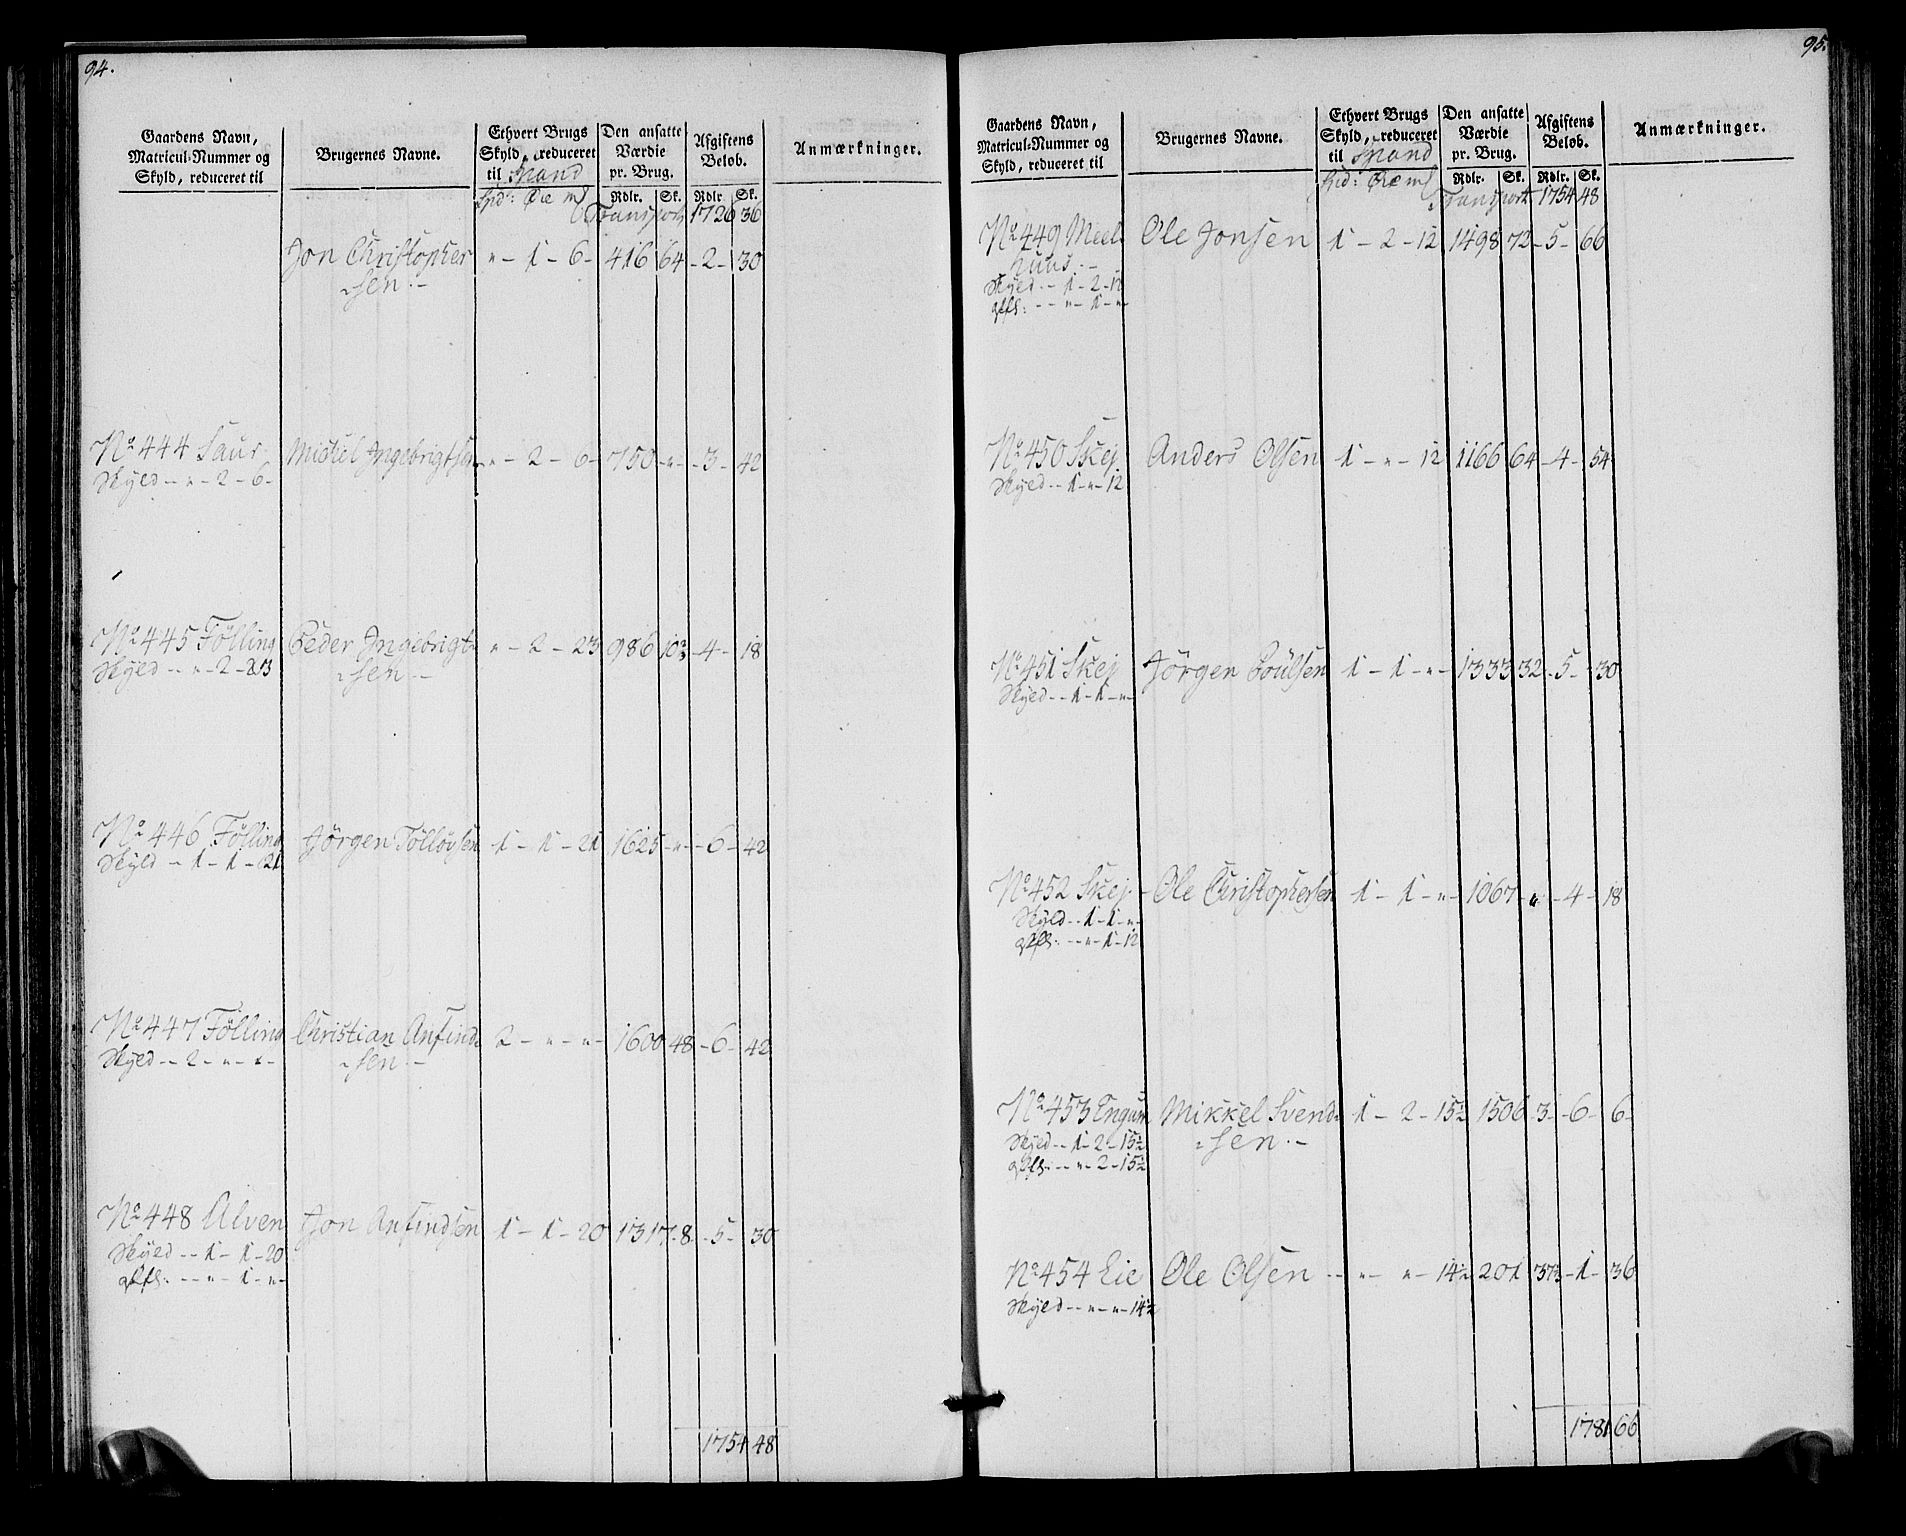 94.
Gaardens Navn, Matricul-Nummer og Skyld, reduceret til | Brugernes Navne. | Ethvert Brugs Skyld, reduceret til Spand | Den ansatte Værdie pr. Brug. | Afgiftens Belob. | Anmærkninger.
Øre | Rdlr. | Sk. | Rdlr. | Sk.
Transport 1726 36
Jon Christopher „ - 1 - 6 - 416 64 - 2 - 30
-sen.-
No 444 Saur Mickel Ingebrigtsen „ - 2 - 6 - 750 - „ - 3 - 42
Skyld - „ - 2 - 6 -
No 445 Fölling Peder Ingebrigt- „ - 2 - 23 986 10 2/3 - 4 - 18
Skyld - „ - 2 - 23 -sen.-
No 446 Fölling Jörgen Tölløvsen 1 - 1 - 21 1625 - „ - 6 - 42
Skyld - 1 - 1 - 21
No 447 Fölling Christian Anfind- 2 - „ - „ - 1600 48 - 6 - 42
Skyld - 2 - „ - „ - -sen.-
No 448 Alven Jon Anfindsen 1 - 1 - 20 1317 - 8 - 5 - 30
Skyld - 1 - 1 - 20
- „ - 1 - „ -
1754 48
95.
Gaardens Navn, Matricul-Nummer og Skyld, reduceret til | Brugernes Navne. | Ethvert Brugs Skyld, reduceret til Spand | Den ansatte Værdie pr. Brug. | Afgiftens Belob. | Anmærkninger.
Øre | Rdlr. | Sk. | Rdlr. | Sk.
Transport 1754 48
No 449 Meel- Ole Jonsen 1 - 2 - 12 1498 72 - 5 - 66
huus.-
Skyld - 1 - 2 - 12
- „ - 1 - „ -
No 450 Skej Anders Olsen 1 - „ - 12 1166 64 - 4 - 54
Skyld - 1 - „ - 12
No 451 Skej Jörgen Poulsen 1 - 1 - „ - 1333 32 - 5 - 30
Skyld - 1 - 1 - „ -
No 452 Skej - Ole Christophersen 1 - 1 - „ - 1067 - „ - 4 - 18
Skyld - 1 - 1 - „ -
- „ - 1 - 12
No 453 Engum Mikkel Svend- 1 - 2 - 15½ 1506 3 - 6 - 6 -
Skyld - 1 - 2 - 15½ -sen.-
- „ - 2 - 15½
No 454 Eie Ole Olsen - „ - „ - 14½ 201 - 1 - 36
Skyld - „ - „ - 14½
1781 66